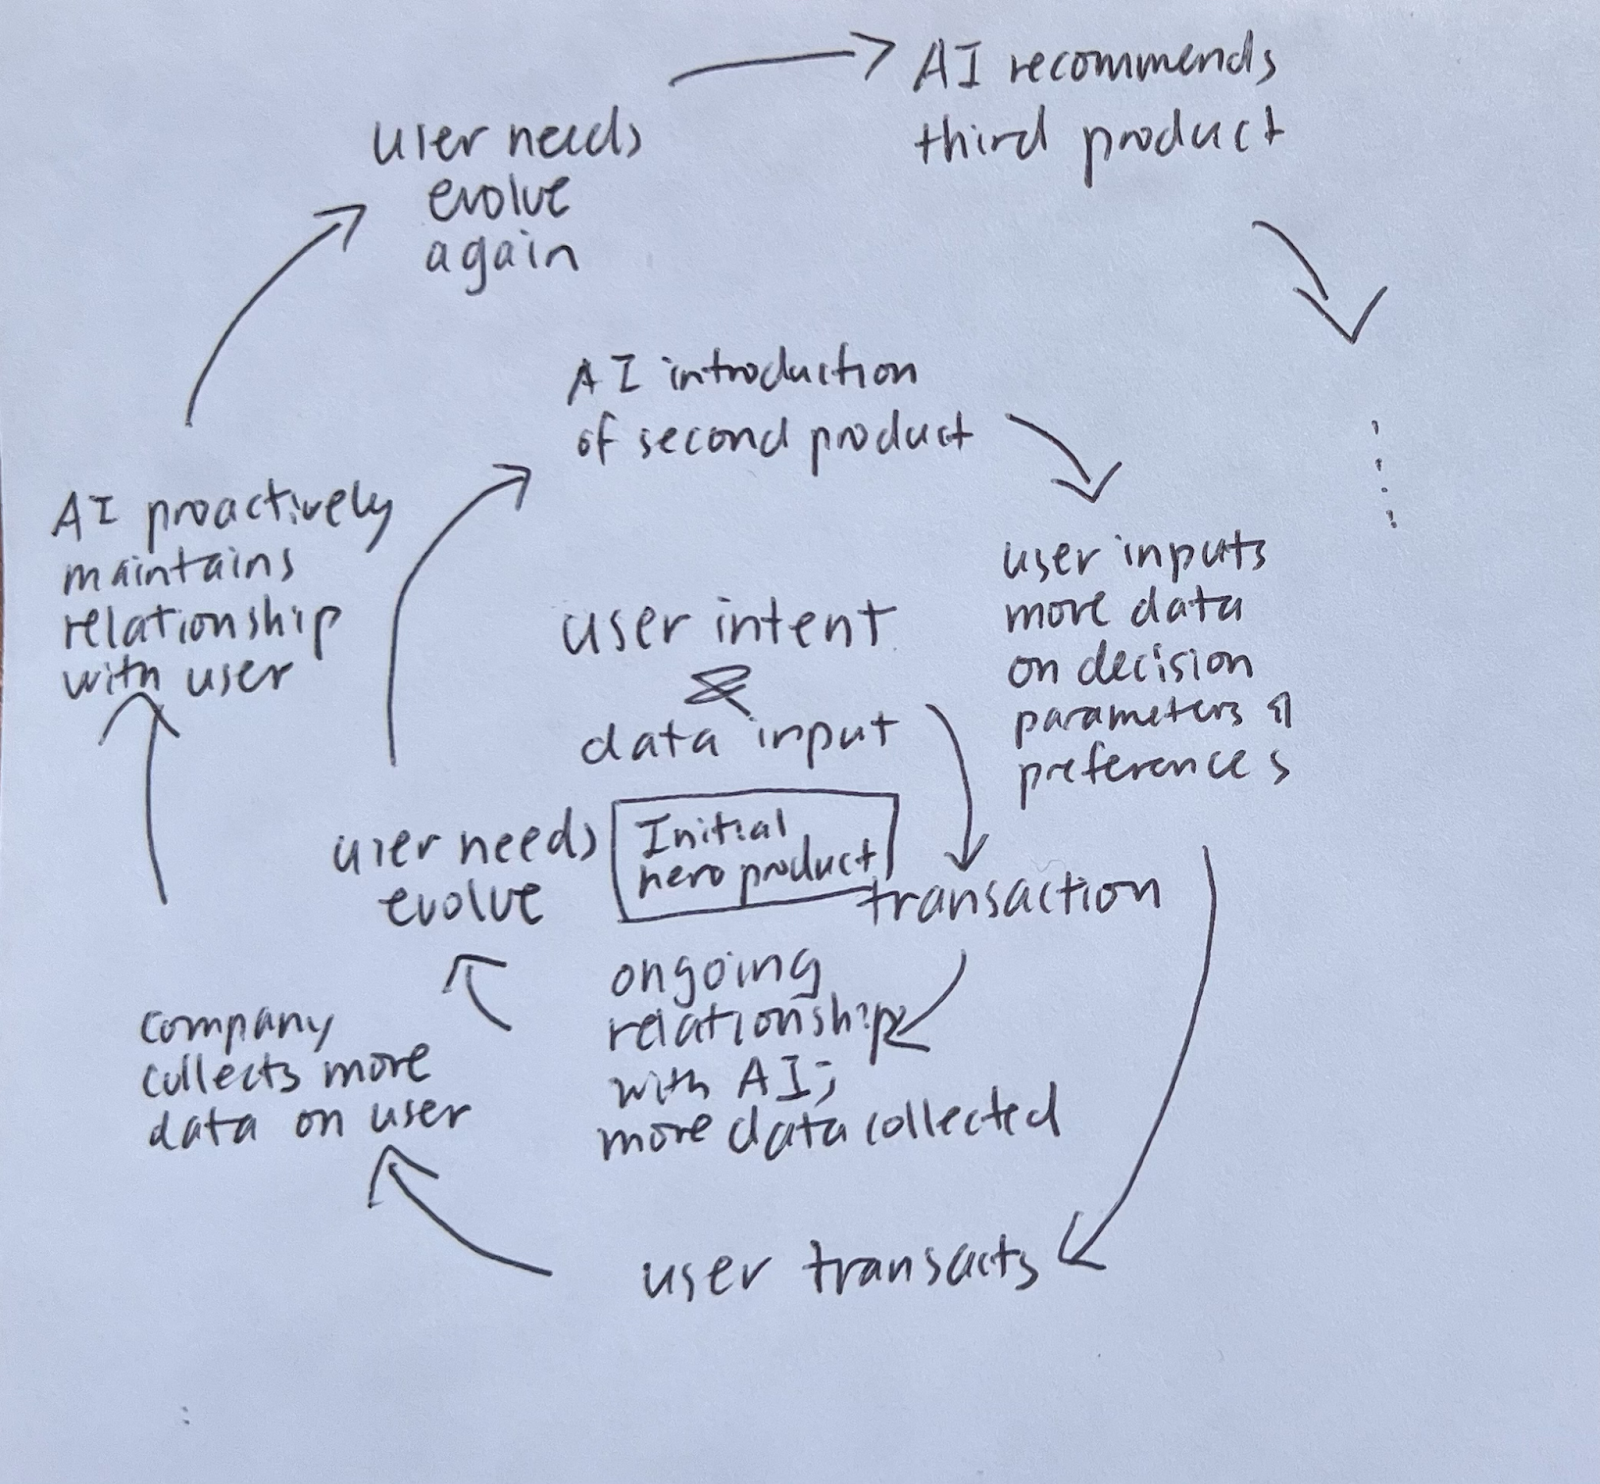 AI recommends
third product
user needs
evolve
again
AI introduction
of second product
AI proactively
maintains
relationship
with user
user inputs
more data
on decision
parameters &
preferences
user intent
&
data input
Initial
hero product
user needs
evolve
transaction
ongoing
relationship
with AI;
more data collected
company
collects more
data on user
user transacts